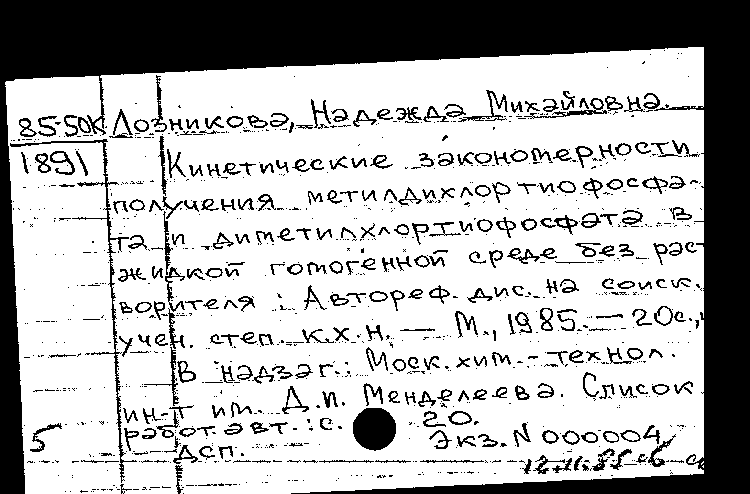 85-50К Лозникова, Надежда Михайловна.
1891 Кинетические закономерности
получения метилдихлортиофосфа-
та и диметилхлортиофосфата в
жидкой гомогенной среде без раст
ворителя : Автореф. дис. на соиск.
учен. степ. к.х.н. — М., 1985. — 20с.,
В надзаг.: Моск. хим.-технол.
ин-т им. Д.И. Менделеева. Список
работ авт.: с. 20.
5 Экз. N 000004
ДСП.
12.11.85